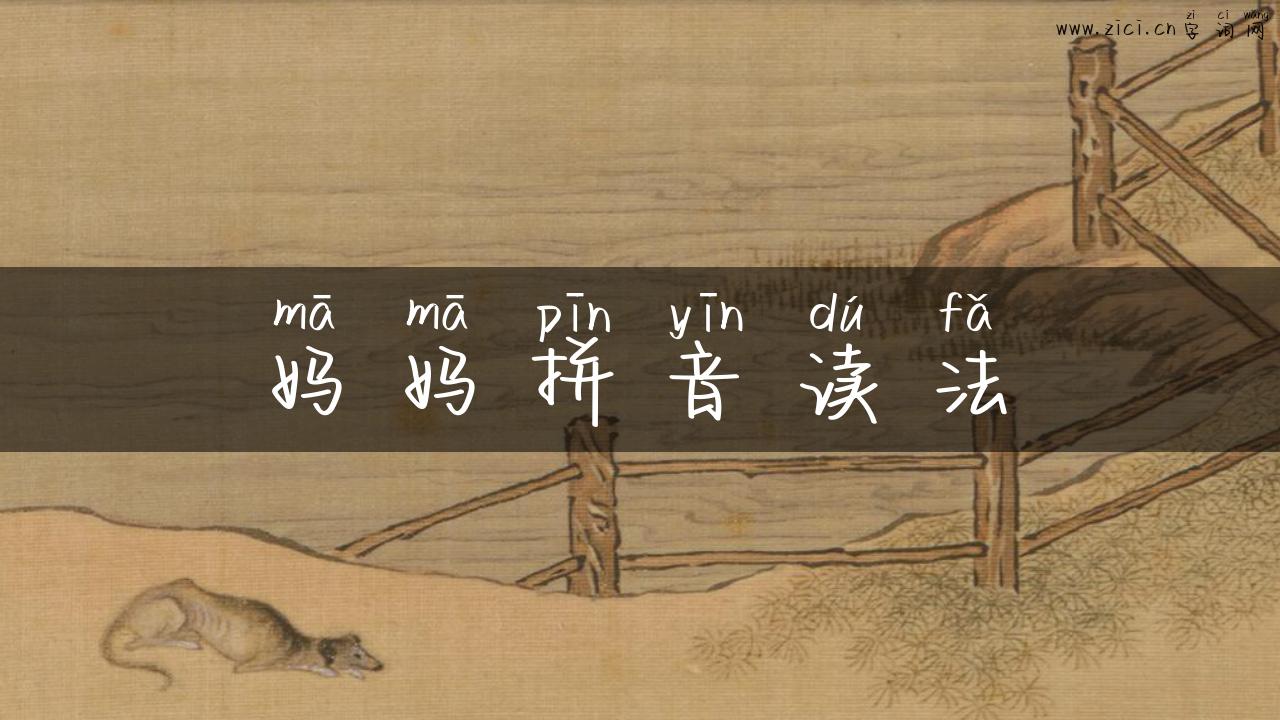 zì cí wǎng
www.zici.cn 字 词 网
mā mā pīn yīn dú fǎ
妈 妈 拼 音 读 法